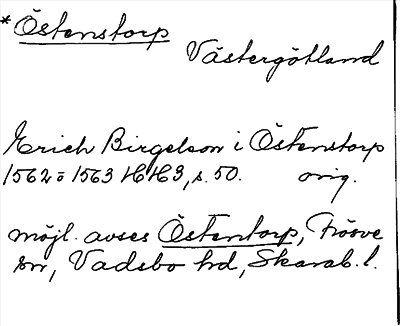 * Östenstorp
Västergötland
Erich Birgelson i Östenstorp
1562 o 1563 HH3, s. 50. orig.
möjl. avses Östentorp, Frösve
sn, Vadsbo hd, Skarab. l.